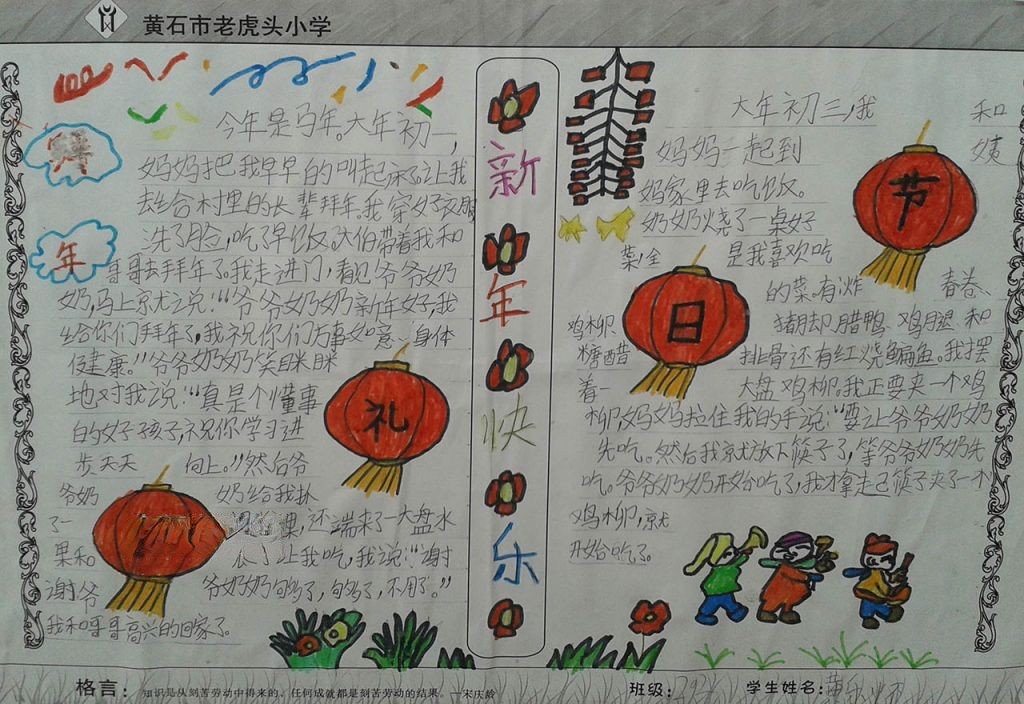 黄石市老虎头小学
拜
年
今年是马年。大年初一,
妈妈把我早早的叫起床了。让我
去给村里的长辈拜年。我穿好衣服
洗了脸,吃了早饭。大伯带着我和
哥哥去拜年了。我走进门,看见爷爷奶
奶,马上就说:“爷爷奶奶新年好,我
给你们拜年了,我祝你们万事如意、身体
健康。”爷爷奶奶笑眯眯
地对我说:“真是个懂事
的好孩子,祝你学习进
步天天 向上。”然后爷
爷奶 奶给我
了一 ,还端来了一大盘水
果和 瓜子让我吃,我说:“谢
谢爷 爷奶奶够了,够了,不用了。”
我和哥哥高兴的回家了。
礼
新
年
快
乐
大年初三,我 和
妈妈一起到 姨
妈家里去吃饭。
奶奶烧了一桌好
菜!全 是我喜欢吃
的菜。有炸 春卷、
鸡柳、 猪却、腊鸭、鸡腿、和
糖醋 排骨还有红烧鳊鱼。我摆
着一 大盘鸡柳。我正要夹一个鸡
柳,妈妈拉住我的手说:“要让爷爷奶奶
先吃。然后我就放下筷子了,等爷爷奶奶先
吃。爷爷奶奶开始吃了,我才拿走己筷子夹了一个
鸡柳,就
开始吃了。
节
日
格言: 知识是从刻苦劳动中得来的,任何成就都是刻苦劳动的结果。—宋庆龄
班级:
学生姓名: